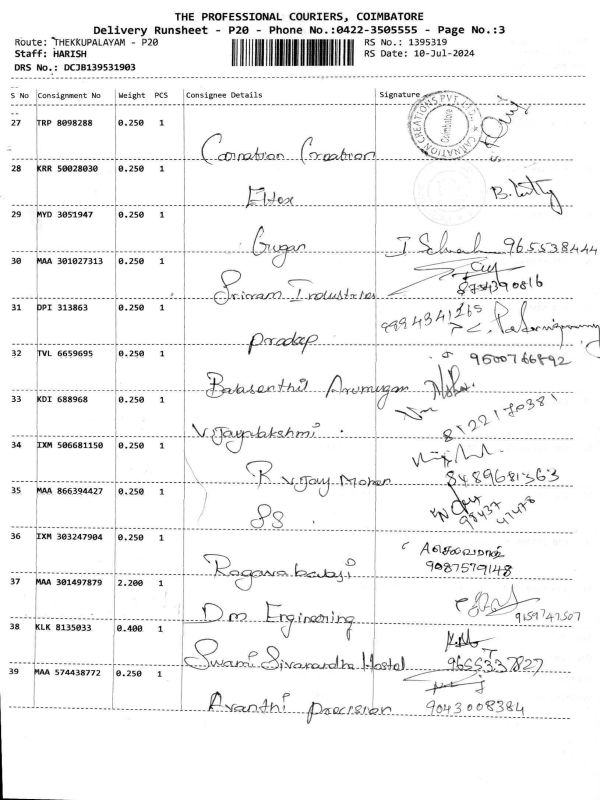 THE PROFESSIONAL COURIERS, COIMBATORE
Delivery Runsheet - P20 - Phone No.:0422-3505555 - Page No.:3
Route: THEKKUPALAYAM - P20 RS No.: 1395319
Staff: HARISH RS Date: 10-Jul-2024
DRS No.: DCJB139531903
S No Consignment No Weight PCS Consignee Details Signature
27 TRP 8098288 0.250 1
CARNATION CREATIONS PVT. LTD. Coimbatore
Coination Creation
28 KRR 50028030 0.250 1
Eltex B.
29 MYD 3051947 0.250 1
Gugan 9655538444
30 MAA 301027313 0.250 1
Sriram Industries 8754390816
31 DPI 313863 0.250 1
Pradap 9994341265
32 TVL 6659695 0.250 1
9500766892
Balasenthil Arumugan
33 KDI 688968 0.250 1
Vijayalakshmi . 8122170381
34 IXM 506681150 0.250 1
R Vijay Mohan 8489681363
35 MAA 866394427 0.250 1
SS . 98437 47478
36 IXM 303247904 0.250 1
Ragava balaji 9087579148
37 MAA 301497879 2.200 1
Dm Enginering 9159747507
38 KLK 8135033 0.400 1
Swami Sivanandha Hostal 9655337827
39 MAA 574438772 0.250 1
Avanthi Precision 9043008384